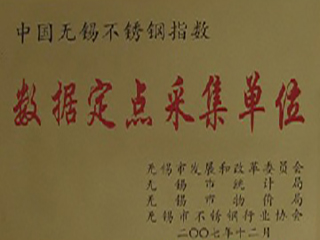 中国无锡不锈钢指数
数据定点采集单位
无锡市发展和改革委员会
无锡市统计局
无锡市物价局
无锡市不锈钢行业协会
二〇〇七年十二月